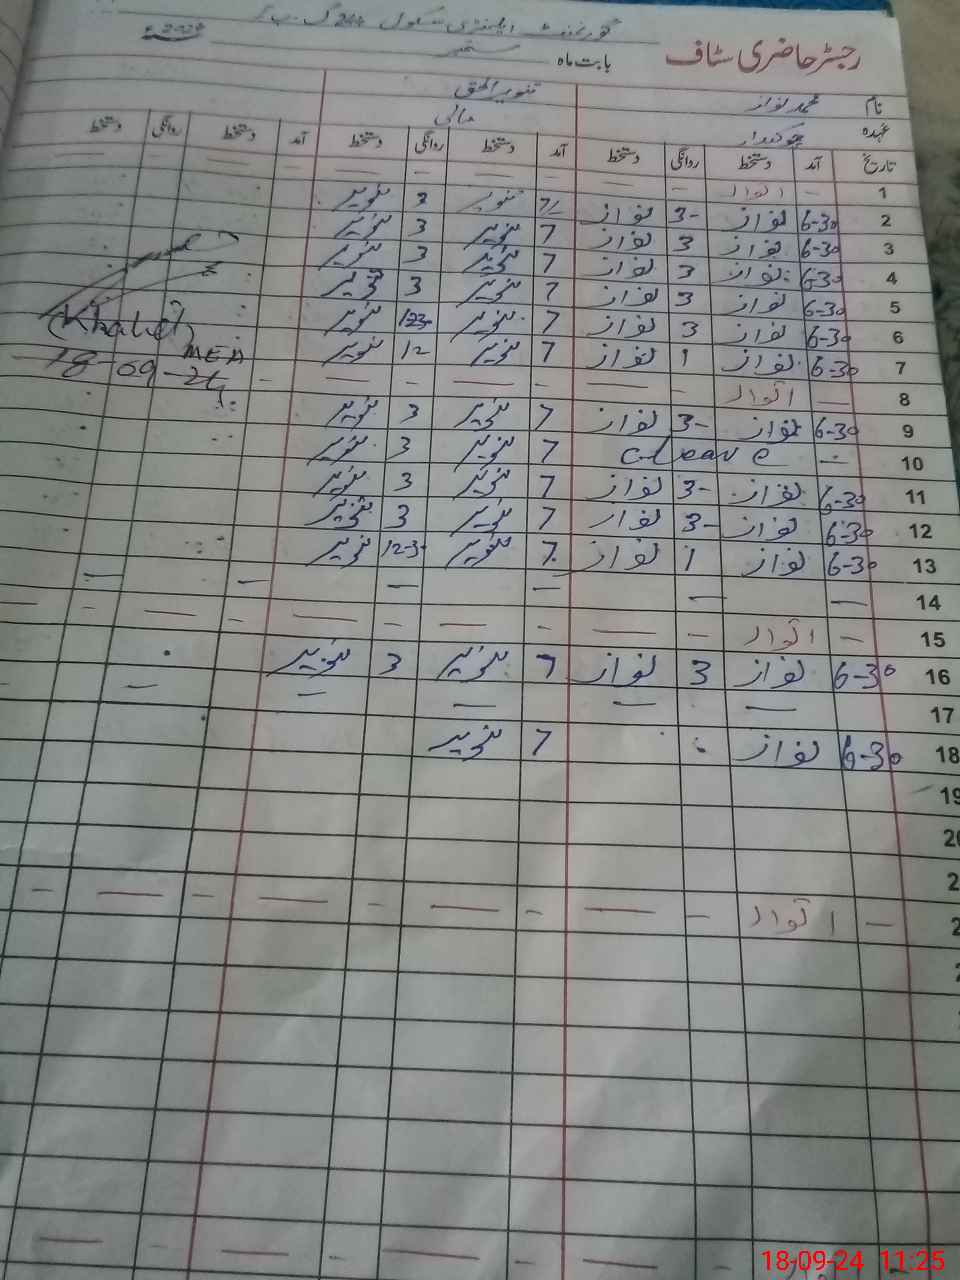 گورنمنٹ ایلیمنٹری سکول 244 گ۔ب
رجسٹر حاضری سٹاف بابت ماہ ستمبر 2024ء
نام محمد نواز تنویر الحق
عہدہ چوکیدار مالی
تاریخ آمد دستخط روانگی دستخط آمد دستخط روانگی دستخط آمد دستخط روانگی دستخط
1 — اتوار — — — — — —
2 6-30 نواز 3- نواز 7/- تنویر 3 تنویر
3 6-30 نواز 3 نواز 7 تنویر 3 تنویر
4 6-30 نواز 3 نواز 7 تنویر 3 تنویر
5 6-30 نواز 3 نواز 7 تنویر 3 تنویر
6 6-30 نواز 3 نواز 7 تنویر تنویر
7 6-30 نواز 1 نواز 7 تنویر 12 تنویر
8 — اتوار — — — — — —
9 6-30 نواز 3- نواز 7 تنویر 3 تنویر
10 — c-leave 7 تنویر 3 تنویر
11 6-30 نواز 3- نواز 7 تنویر 3 تنویر
12 6-30 نواز 3- نواز 7 تنویر 3 تنویر
13 6-30 نواز 1 نواز 7 تنویر 12-30 تنویر
14 — — — — — —
15 — اتوار — — — — — — — — — —
16 6-30 نواز 3 نواز 7 تنویر 3 تنویر
17 — — — — —
18 6-30 نواز 7 تنویر
19
— اتوار — — — — — — — — —
(Khalid)
MEA
18-09-24
18-09-24 11:25